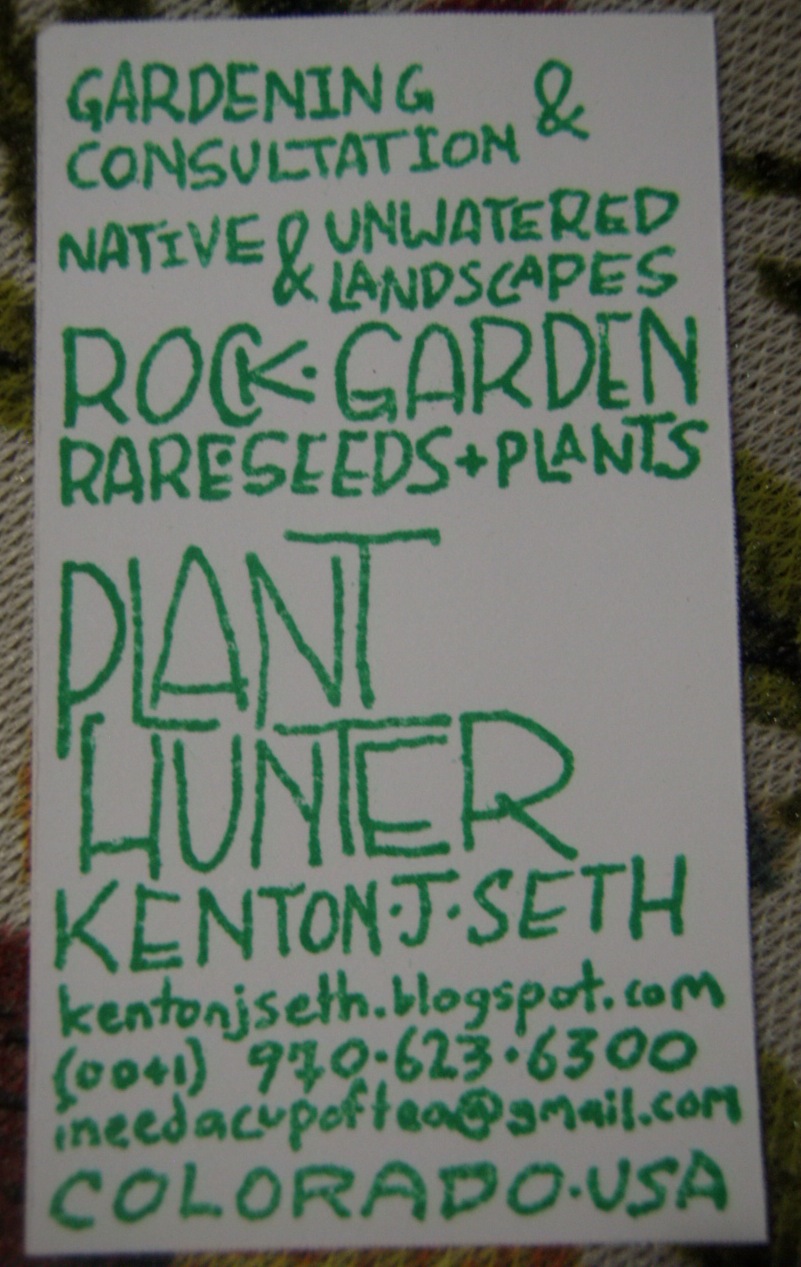 GARDENING &
CONSULTATION
NATIVE & UNWATERED
& LANDSCAPES
ROCK·GARDEN
RARE·SEEDS+PLANTS
PLANT
HUNTER
KENTON·J·SETH
kentonjseth.blogspot.com
(00+1) 970·623·6300
ineedacupoftea@gmail.com
COLORADO·USA